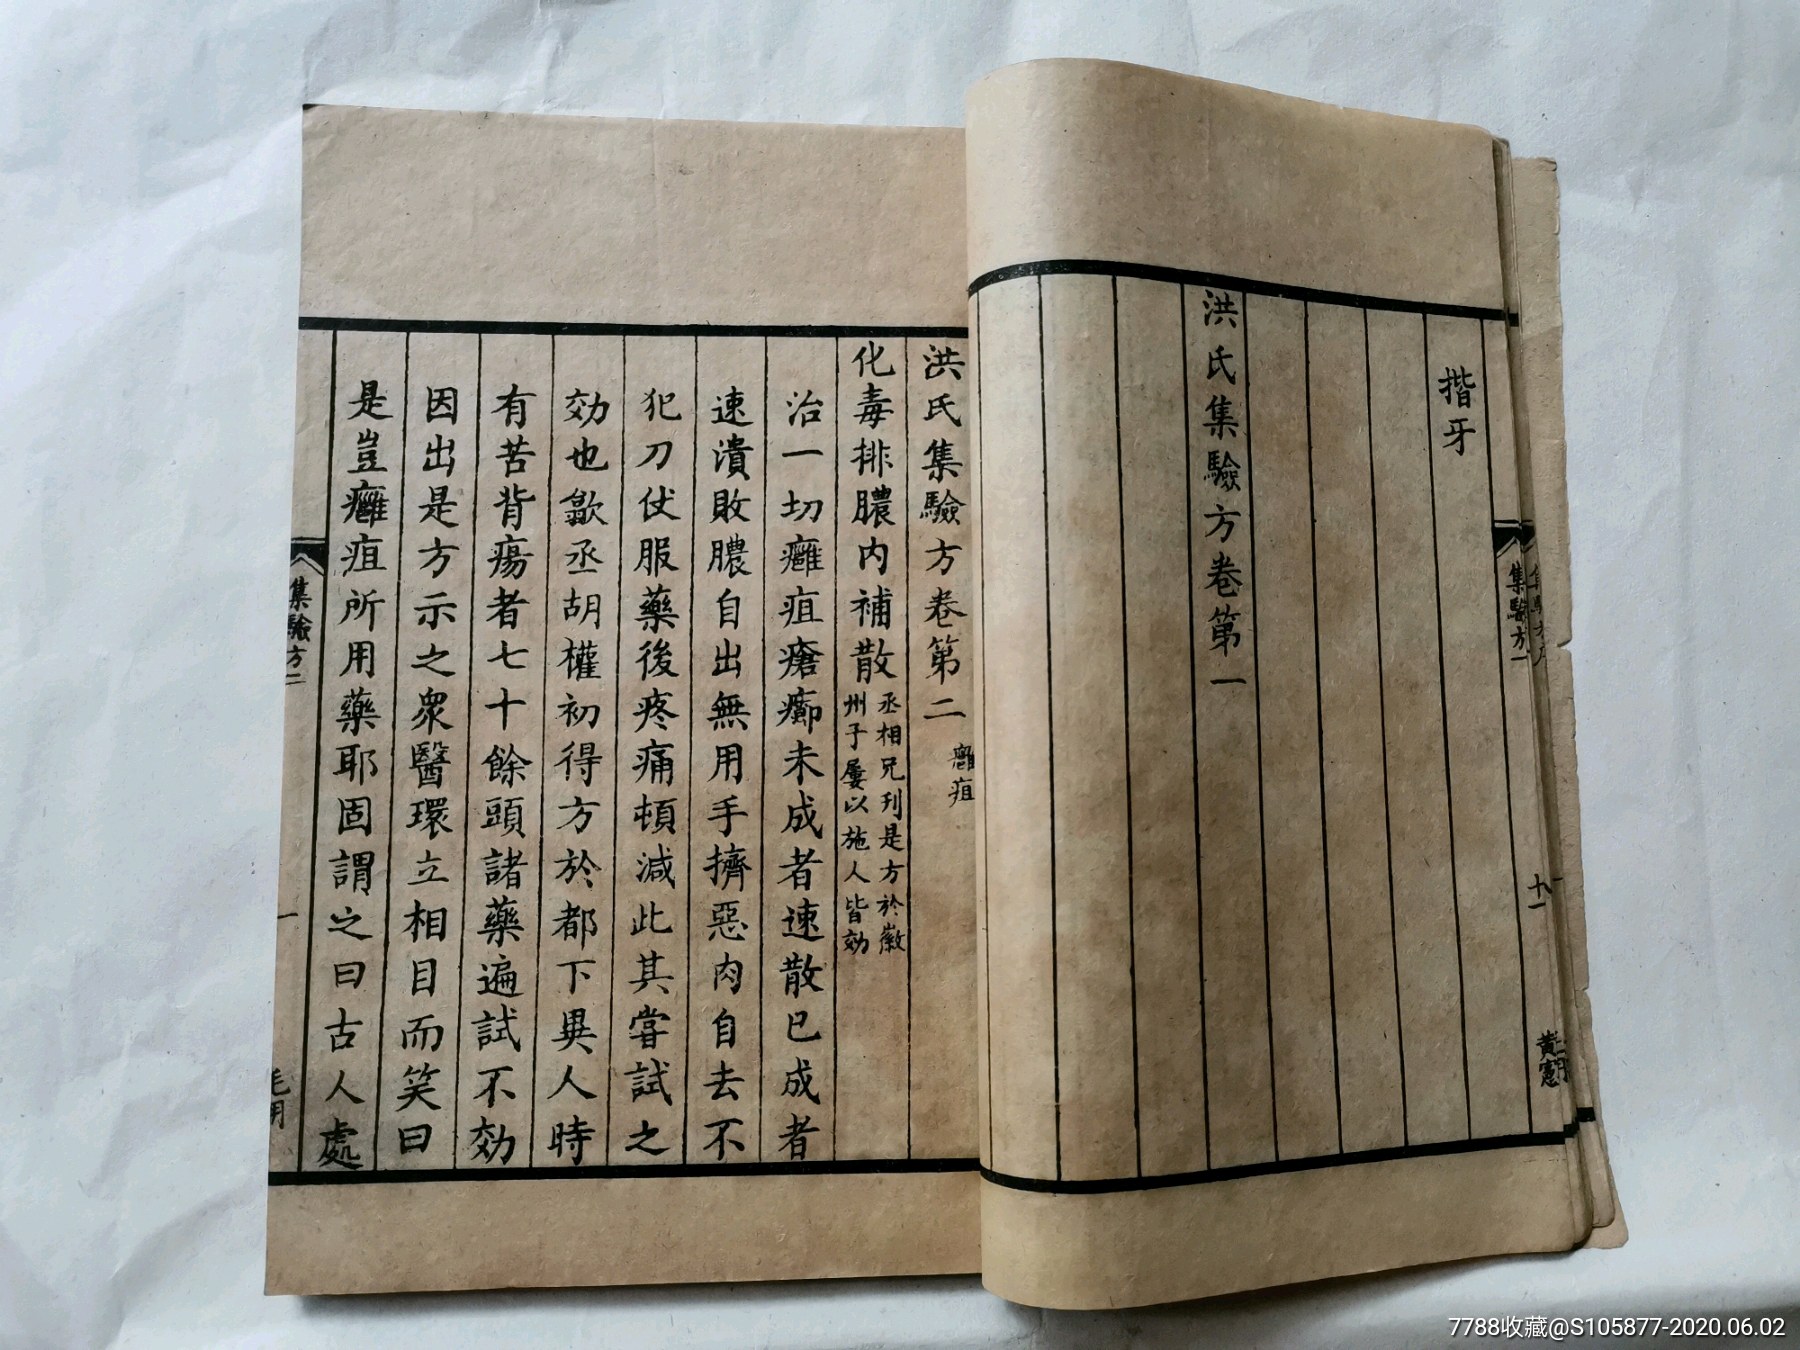 揩牙
洪氏集驗方卷第一
集驗方一
十一
黃憲
洪氏集驗方卷第二
癰疽
化毒排膿內補散
丞相兄刋是方於徽
州予屢以施人皆効
治一切癰疽瘡癤未成者速散已成者
速潰敗膿自出無用手擠惡肉自去不
犯刀仗服藥後疼痛頓減此其嘗試之
効也歙丞胡權初得方於都下異人時
有苦背瘍者七十餘頭諸藥遍試不効
因出是方示之衆醫環立相目而笑曰
是豈癰疽所用藥耶固謂之曰古人處
集驗方二
一
毛用
7788收藏@S105877-2020.06.02